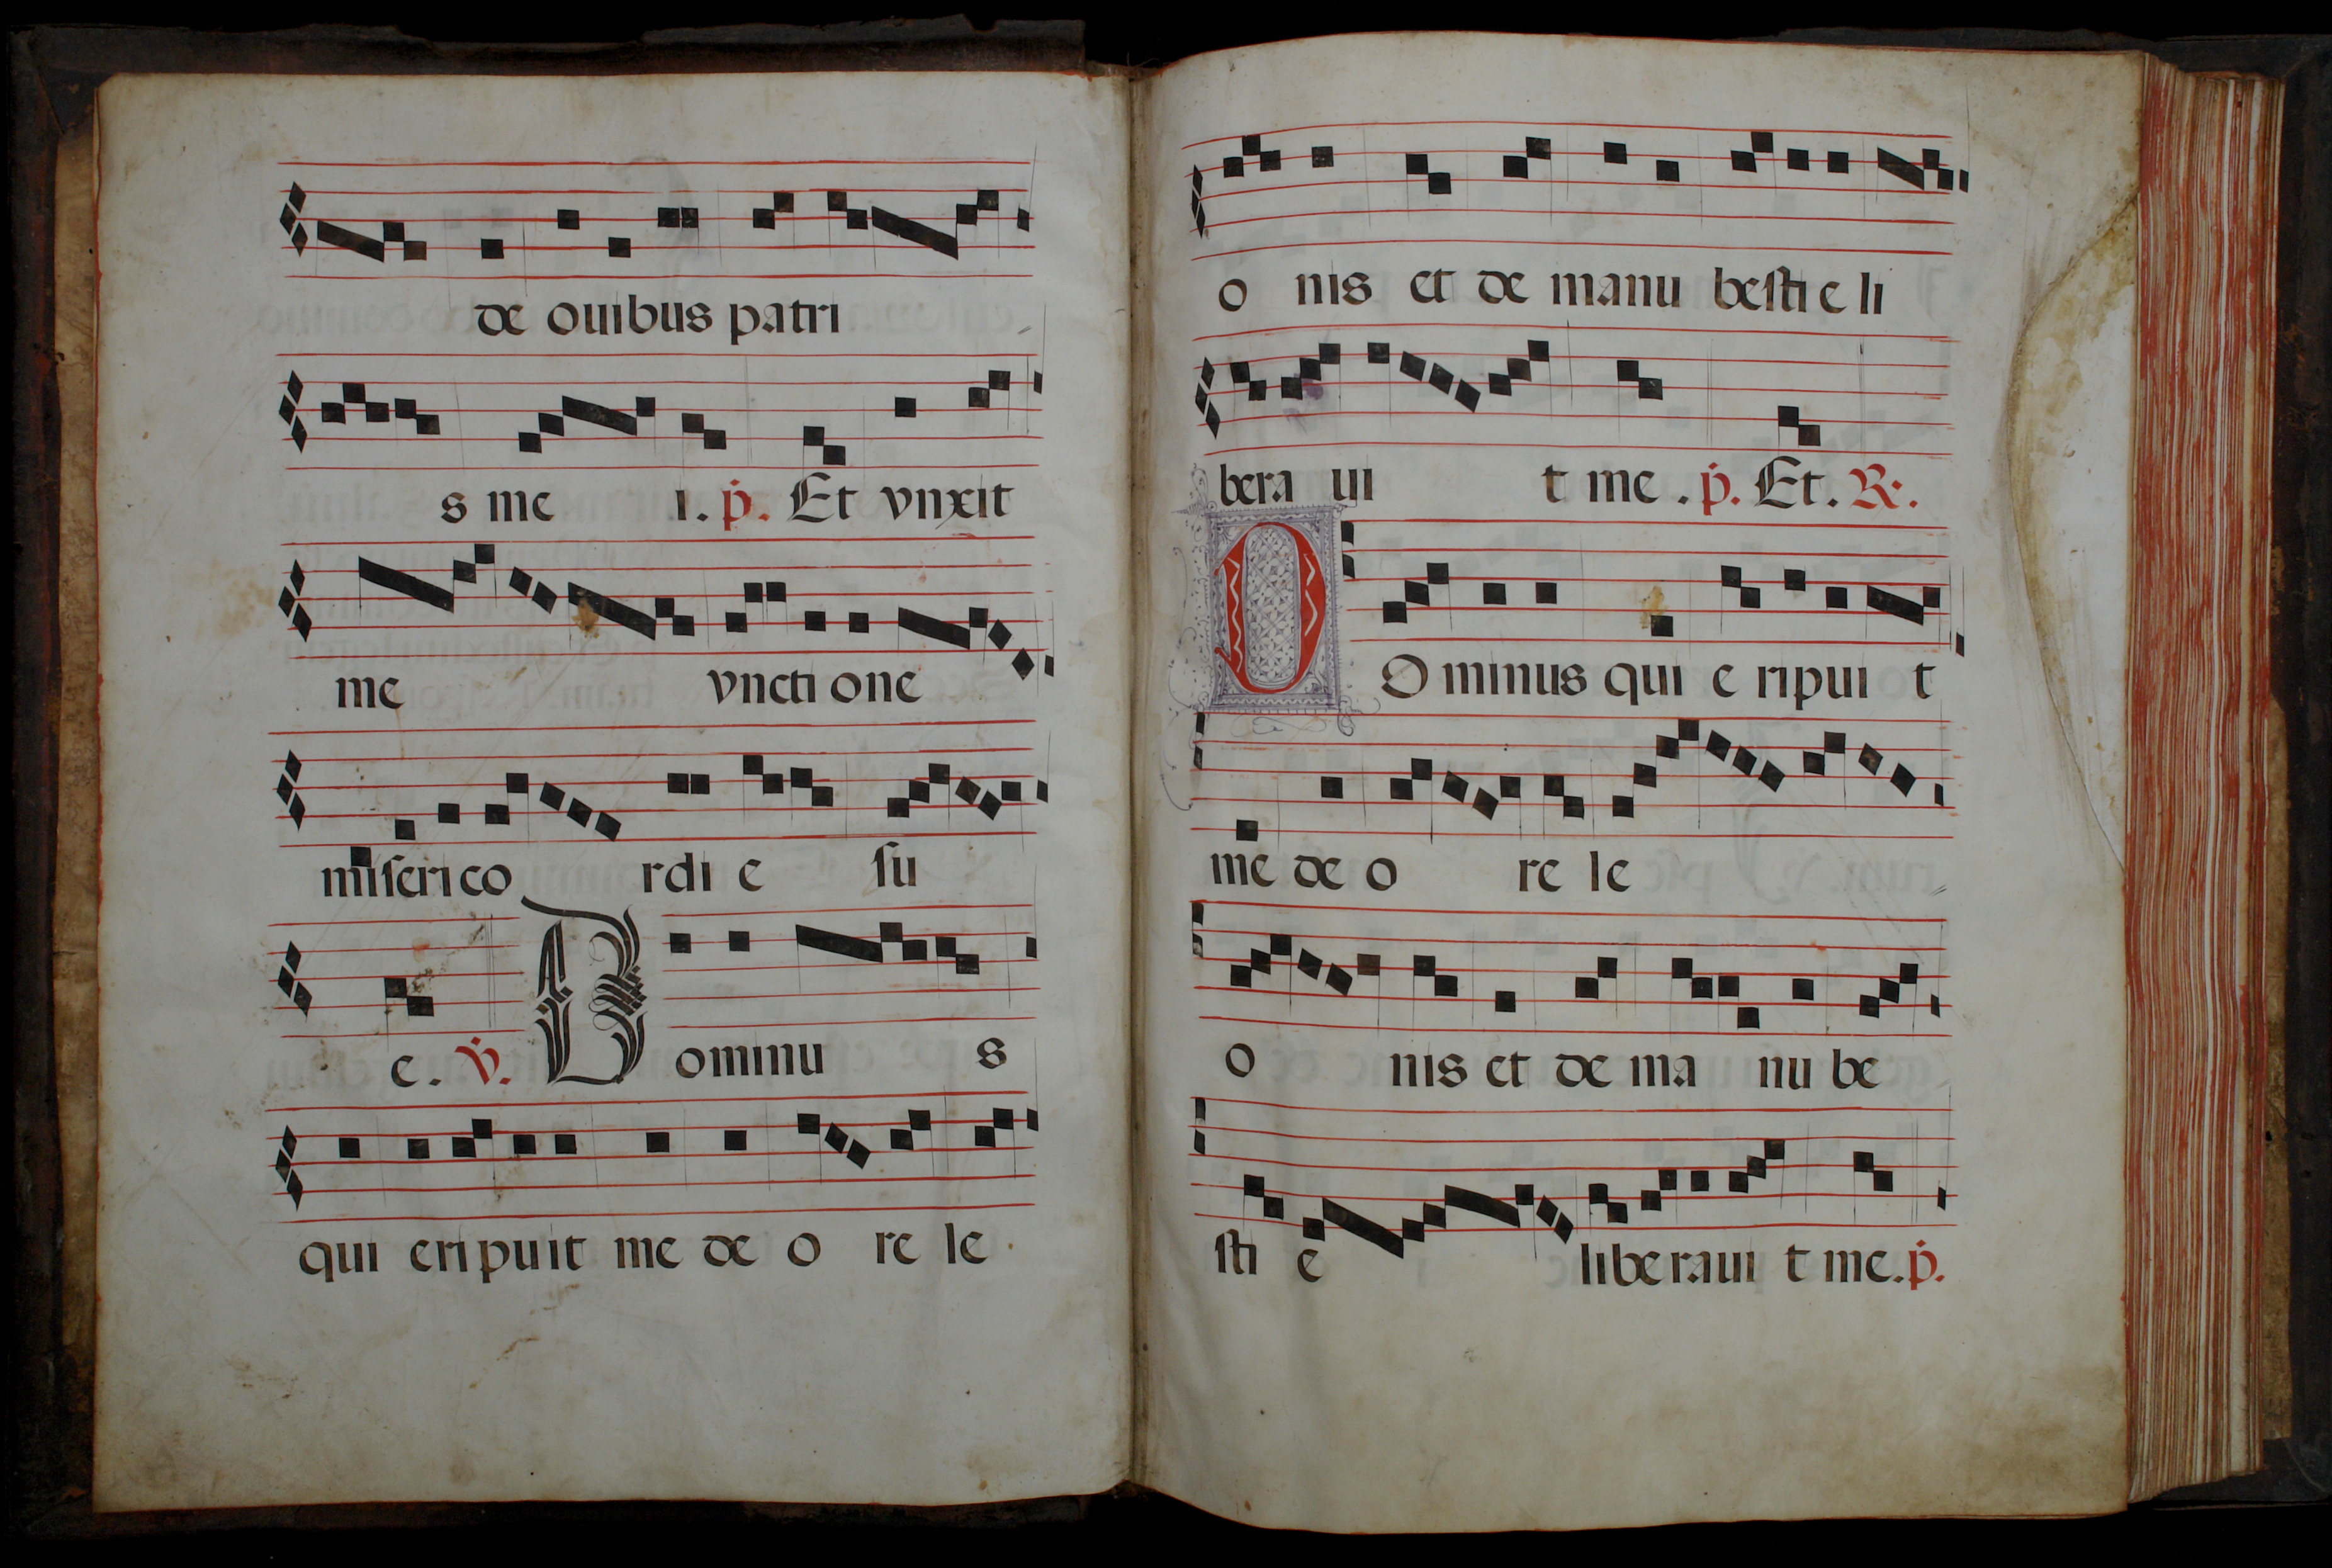 de ouibus patri
s me i. ṗ. Et vnxit
me vnctione
miſerico rdi e ſu
e. v̇. Dominu s
qui eripuit me de o re le
o nis et de manu beſti e li
bera ui t me. ṗ. Et. R.
DOminus qui e ripui t
me de o re le
o nis et de ma nu be
ſti e liberaui t me. ṗ.